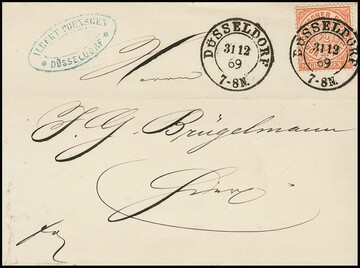 ALBERT POENSGEN
* DÜSSELDORF *
DÜSSELDORF
31 12
69
7-8N.
DÜSSELDORF
31 12
69
7-8N.
Herrn
F. G. Brügelmann
Hier